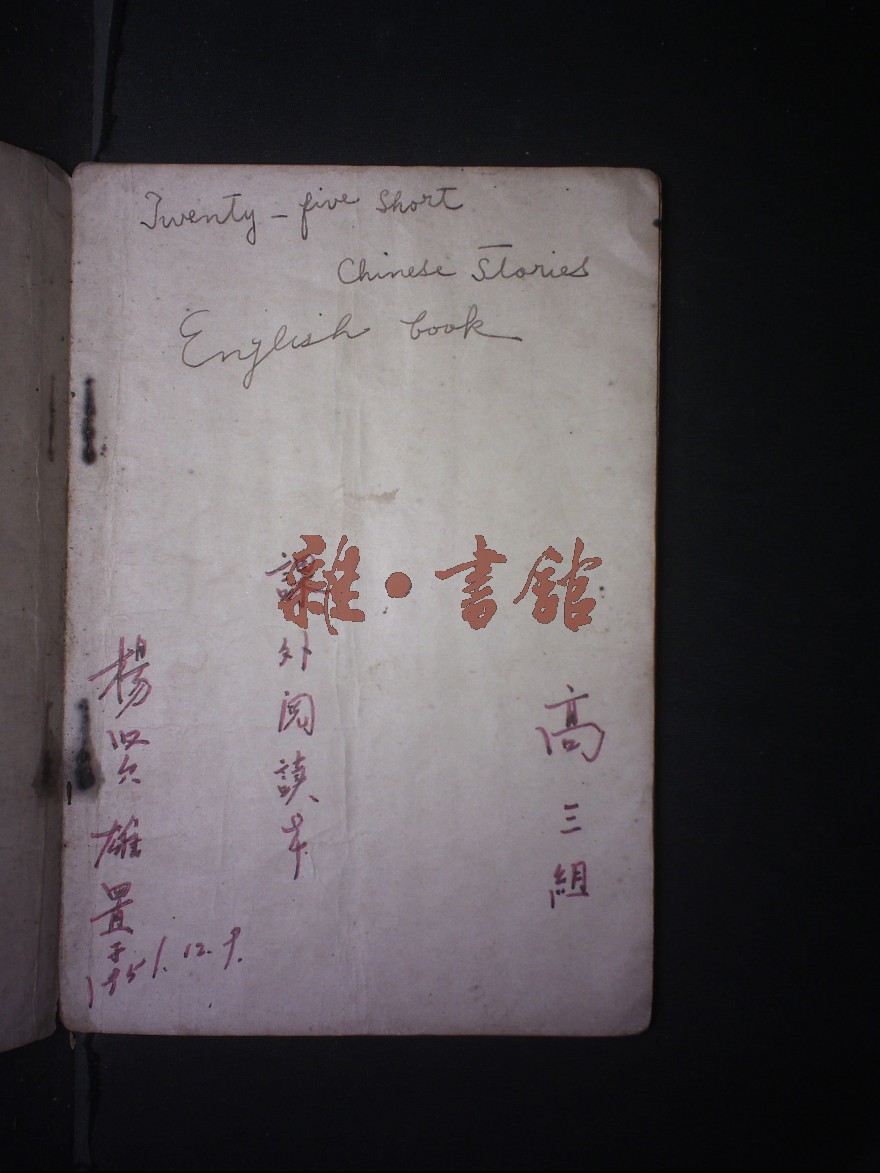 Twenty-five Short
Chinese Stories
English book
雜·書館
高三組
課外阅讀本
楊贤雄置于
1951.12.9.